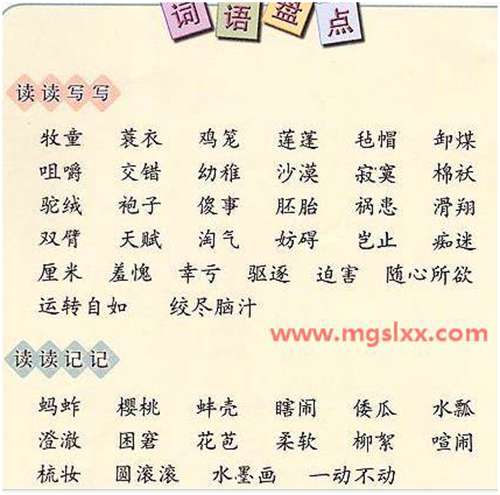 词语盘点
读读写写
牧童 蓑衣 鸡笼 莲蓬 毡帽 卸煤
咀嚼 交错 幼稚 沙漠 寂寞 棉袄
驼绒 袍子 傻事 胚胎 祸患 滑翔
双臂 天赋 淘气 妨碍 岂止 痴迷
厘米 羞愧 幸亏 驱逐 迫害 随心所欲
运转自如 绞尽脑汁
www.mgslxx.com
读读记记
蚂蚱 樱桃 蚌壳 瞎闹 倭瓜 水瓢
澄澈 困窘 花芭 柔软 柳絮 喧闹
梳妆 圆滚滚 水墨画 一动不动